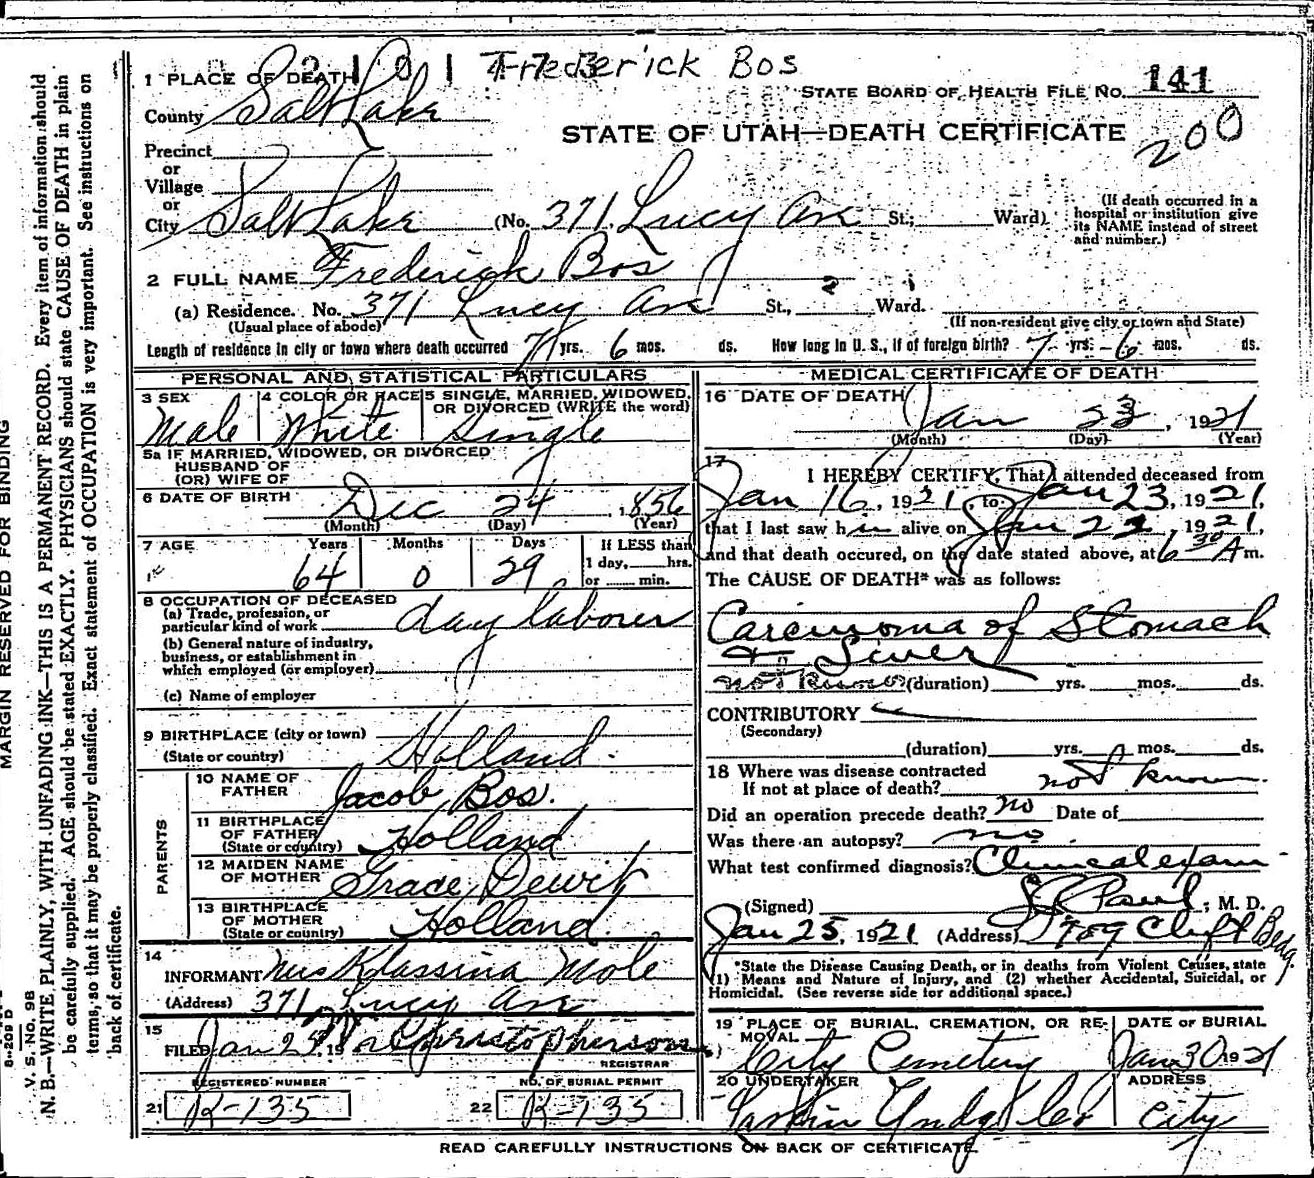 Frederick Bos
1 PLACE OF DEATH
STATE BOARD OF HEALTH FILE NO. 141
County Salt Lake
STATE OF UTAH—DEATH CERTIFICATE
200
Precinct
or
Village
or
City Salt Lake (No. 371 Lucy Ave St.; Ward)
(If death occurred in a hospital or institution give its NAME instead of street and number.)
2 FULL NAME Frederick Bos
(a) Residence. No. 371 Lucy Ave St., 2 Ward.
(Usual place of abode) (If non-resident give city or town and State)
Length of residence in city or town where death occurred 7 yrs. 6 mos. ds. How long in U. S., if of foreign birth? 7 yrs. 6 mos. ds.
PERSONAL AND STATISTICAL PARTICULARS
3 SEX 4 COLOR OR RACE 5 SINGLE, MARRIED, WIDOWED, OR DIVORCED (WRITE the word)
Male White Single
5a IF MARRIED, WIDOWED, OR DIVORCED
HUSBAND OF
(OR) WIFE OF
6 DATE OF BIRTH Dec 24, 1856
(Month) (Day) (Year)
7 AGE Years Months Days If LESS than
1 day, hrs.
64 0 29 or min.
8 OCCUPATION OF DECEASED
(a) Trade, profession, or
particular kind of work day laborer
(b) General nature of industry,
business, or establishment in
which employed (or employer)
(c) Name of employer
9 BIRTHPLACE (city or town)
(State or country) Holland.
PARENTS
10 NAME OF
FATHER Jacob Bos.
11 BIRTHPLACE
OF FATHER
(State or country) Holland
12 MAIDEN NAME
OF MOTHER Grace Dewit
13 BIRTHPLACE
OF MOTHER
(State or country) Holland.
14
INFORMANT Mrs Klassina Mole
(Address) 371 Lucy Ave
15
FILED Jan 25, 19 Christopherson
REGISTRAR
REGISTERED NUMBER NO. OF BURIAL PERMIT
21 K-135 22 K-135
MEDICAL CERTIFICATE OF DEATH
16 DATE OF DEATH
Jan 23, 1921
(Month) (Day) (Year)
17
I HEREBY CERTIFY, That I attended deceased from
Jan 16, 1921, to Jan 23, 1921,
that I last saw him alive on Jan 22, 1921,
and that death occured, on the date stated above, at 6 30 A m.
The CAUSE OF DEATH* was as follows:
Carcinoma of Stomach
+ Liver
not known (duration) yrs. mos. ds.
CONTRIBUTORY
(Secondary)
(duration) yrs. mos. ds.
18 Where was disease contracted
If not at place of death? not known
Did an operation precede death? no Date of
Was there an autopsy? no
What test confirmed diagnosis? Clinical exam
(Signed) Paul, M. D.
Jan 25, 1921 (Address) 709 Clift Bldg.
*State the Disease Causing Death, or in deaths from Violent Causes, state
(1) Means and Nature of Injury, and (2) whether Accidental, Suicidal, or
Homicidal. (See reverse side for additional space.)
19 PLACE OF BURIAL, CREMATION, OR RE-
MOVAL DATE OF BURIAL
City Cemetery Jan 30 1921
20 UNDERTAKER ADDRESS
City
READ CAREFULLY INSTRUCTIONS ON BACK OF CERTIFICATE
MARGIN RESERVED FOR BINDING
V. S. NO. 98
N. B.—WRITE PLAINLY, WITH UNFADING INK—THIS IS A PERMANENT RECORD. Every item of information should
be carefully supplied. AGE should be stated EXACTLY. PHYSICIANS should state CAUSE OF DEATH in plain
terms, so that it may be properly classified. Exact statement of OCCUPATION is very important. See instructions on
back of certificate.